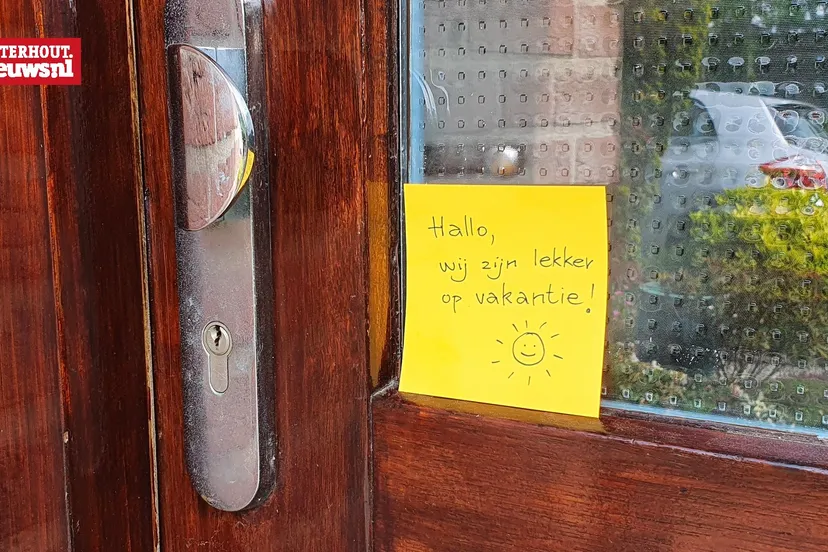 TERHOUT.
ieuws.nl
Hallo,
wij zijn lekker
op vakantie!